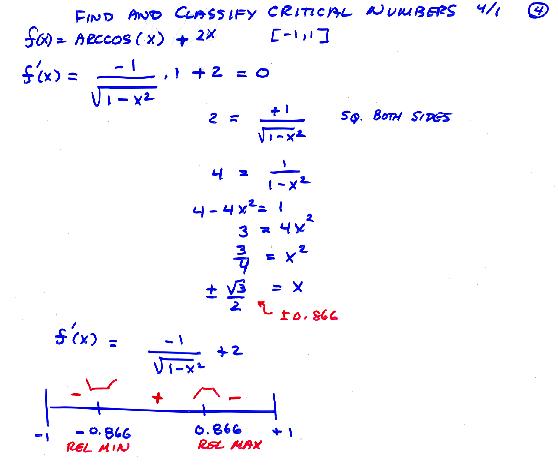 FIND AND CLASSIFY CRITICAL NUMBERS 4/1 ④
f(x) = ARCCOS(x) + 2x [-1,1]
f'(x) = -1/√(1-x²) . 1 + 2 = 0
2 = +1/√(1-x²) SQ. BOTH SIDES
4 = 1/(1-x²)
4 - 4x² = 1
3 = 4x²
3/4 = x²
± √3/2 = x
±0.866
f'(x) = -1/√(1-x²) + 2
- + -
-1 -0.866 0.866 +1
REL MIN REL MAX